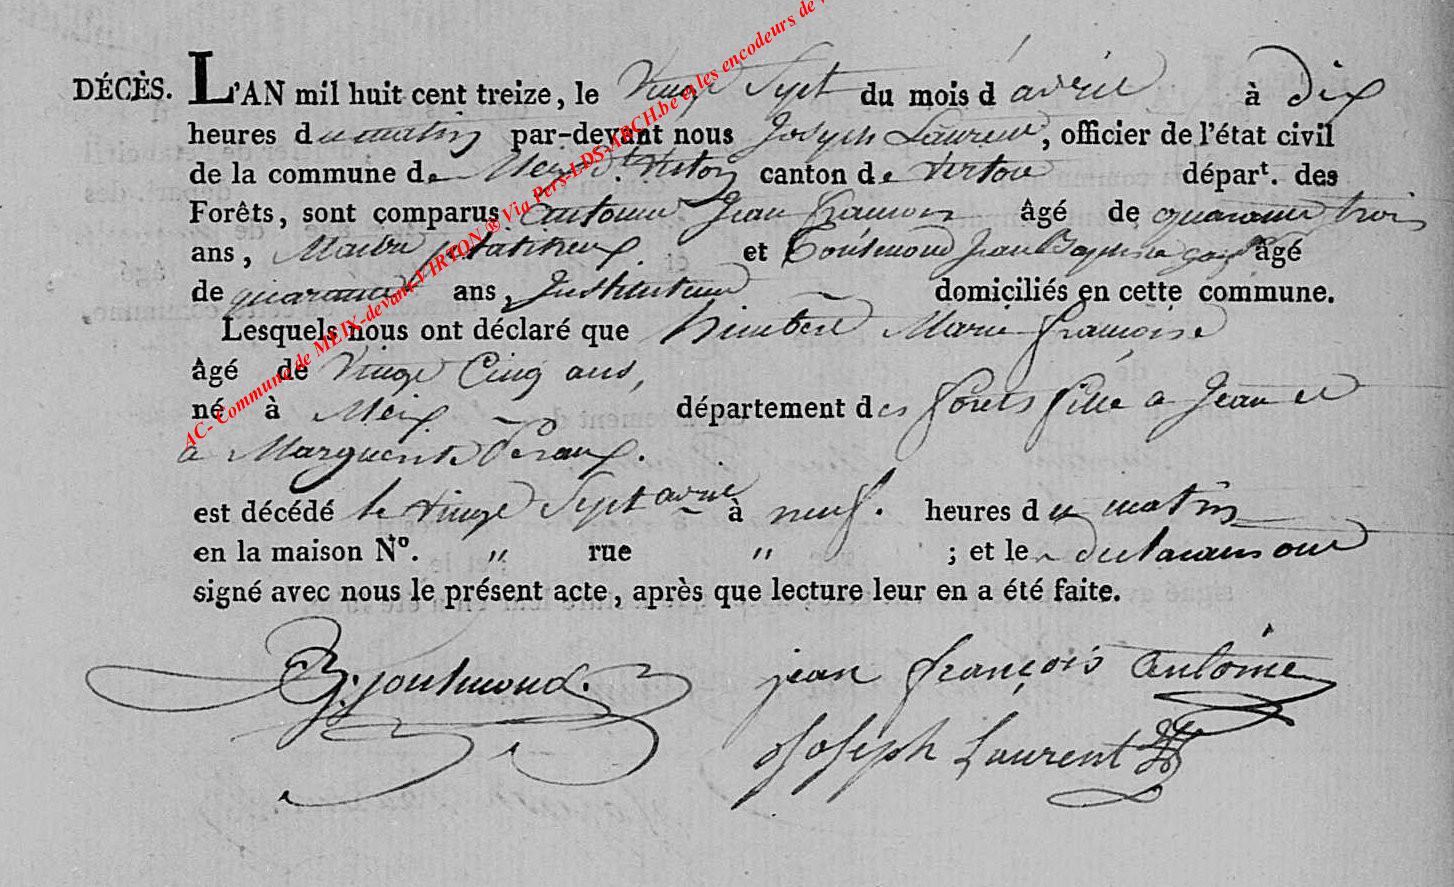 DÉCÈS. L'AN mil huit cent treize, le Vingt Sept du mois d'avril à dix
heures du matin par-devant nous Joseph Laurent, officier de l'état civil
de la commune de Meix dt Virton canton de Virton départ. des
Forêts, sont comparus Antoine Jean francois âgé de quarante trois
ans, et Jean Baptiste âgé
de quarante ans, Instituteur domiciliés en cette commune.
Lesquels nous ont déclaré que himbere Marie francoise
âgé de Vingt Cinq ans,
né à Meix département des forets fille a Jean et
a Marguerite
est décédé le vingt Sept avril à neuf. heures du matin
en la maison N°. " rue " ; et les declarans ont
signé avec nous le présent acte, après que lecture leur en a été faite.
jean françois Antoine
Joseph Laurent
AC- Commune de MEIX-devant-VIRTON ® Via Pers-LDS-ARCH.be et les encodeurs de